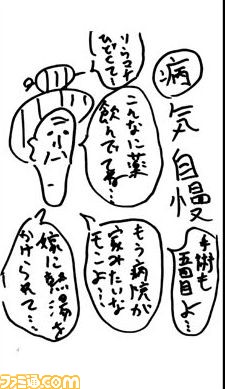 病気自慢
リウマチ
ひどくてー
こんなに薬
飲んでてね…
手術も
五回目よ…
もう病院が
家みたいな
モンよ…
嫁に熱湯を
かけられて…
ファミ通.com